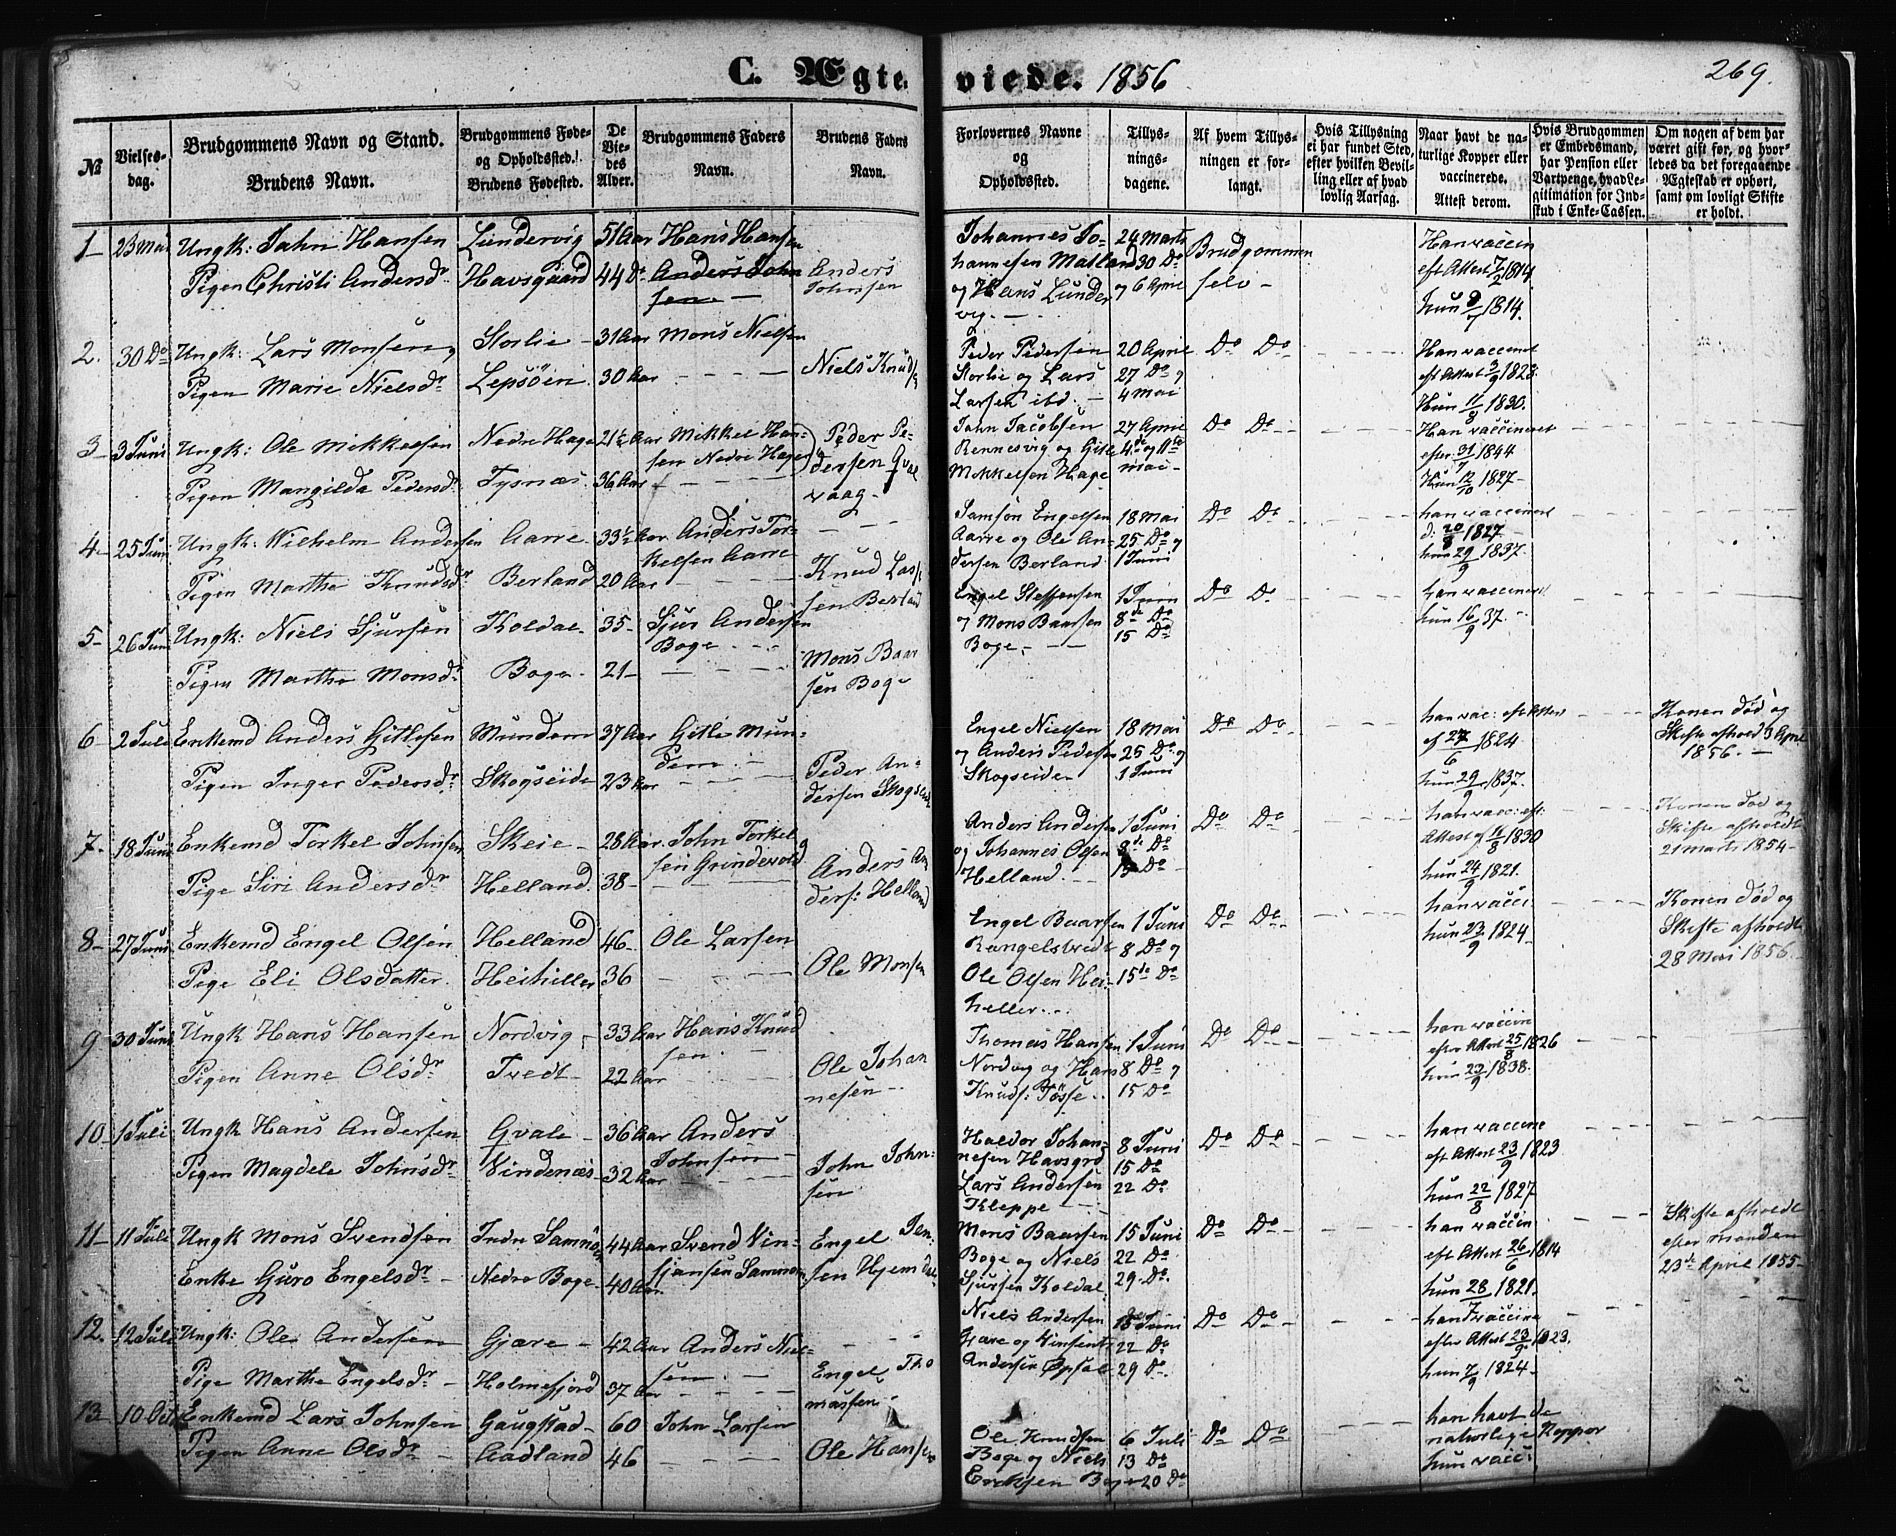 C. Ægte
viede. 1856
269.
№
Vielses-
dag.
Brudgommens Navn og Stand.
Brudens Navn.
Brudgommens Føde-
og Opholdssted.
Brudens Fødested.
De
Vie-
des
Alder.
Brudgommens Faders
Navn.
Brudens Faders
Navn.
Forlovernes Navne
og
Opholdssted.
Tillys-
nings-
dagene.
Af hvem Tillys-
ningen er for-
langt.
Hvis Tillysning
ei har fundet Sted,
efter hvilken Bevil-
ling eller af hvad
lovlig Aarsag.
Naar havt de na-
turlige Kopper eller
vaccinerede.
Attest derom.
Hvis Brudgommen
er Embedsmand,
har Pension eller
Vartpenge, hvad Le-
gitimation for Ind-
skud i Enke-Cassen.
Om nogen af dem har
været gift før, og hvor-
ledes da det foregaaende
Ægteskab er ophørt,
samt om lovligt Skifte
er holdt.
1 23 Mai Ungk: Jahn Hansen Lundervig 51 Aar Hans Hansen
Pigen Christi Andersdr Havsgaard 44 Do Anders John Anders
sen — Johnsen
Johannes Jo- 24 Marts Brudgommen Han vaccin
hannesen Matland 30 Do selv - eft Attest 7/2 1814
og Hans Lunder og 6 April hun 1814.
vig.
2. 30 Do Ungk: Lars Monsen Storlie - 31 Aar Mons Nielsen
Pigen Marie Nielsdr Lepsöen 30 Aar Niels Knuds
Peder Pedersen 20 April Do Do Han vaccinet
Storlie og Lars 27 Do og eft Attest 3/9 1823.
Larsen ibd. 4 Mai Hun 11/8 1830.
3 3 Juni Ungk: Ole Mikkelsen Nedre Hage 21½ Aar Mikkel Han- Peder Pe-
sen Nedre Hage dersen Qval
Pigen Mangilda Pedersdr Tysnæs 36 Aar vaag.
John Jacobsen 27 April Do Do Han vaccineret
Rennesvig og Gitle 4de og 11te efter 31/7 1844
Mikkelsen Hage Mai Hun 12/10 1827
4 25 Juni Ungk: Wilhelm Andersen Aarre 33½ Aar Anders Tor-
kelsen Aarre
Pigen Martha Knudsdr Berland 20 Aar Knud Lar-
sen Berland
Samson Engelsen 18 Mai Do Do han vaccineret
Aarre og Ole An- 25 Do og d: 20/8 1827
dersen Berland 1 Juni hun 29/9 1837.
5 26 Juni Ungk: Niels Sjursen Koldal 35 Sjur Andersen
Boge
Pigen Martha Monsdr Boge 21 Mons Baar
sen Boge
Engel Steffensen 1 Juni Do Do han vaccineret
og Mons Baarsen 8de Do hun 16/9 37.
Boge. 15 Do
6 2 Juli Enkemd Anders Gitlesen Mundem 37 Aar Gitle Mun-
dem
Pigen Inger Pedersdr Skogseide 23 Aar Peder An-
dersen Skogseide
Engel Nielsen 18 Mai Do Do han vac: eft Attest Konen død og
og Anders Pedersen 25 Do og af 27/6 1824 Skifte afhold 3 April
Skogseide 1 Juni hun 29/9 1837. 1856.
7. 18 Juni Enkemd Torkel Johnsen Skeie 28 Aar John Torkel
sen Grindevold
Pige Siri Andersdr Helland 38 Anders An
ders: Helland
Anders Andersen 1 Juni Do Do han vacc: eft: Konen død og
og Johannes Olsen 8de Do Attest af 11/8 1830 Skifte afholdt
Helland 15 Do hun 24/9 1821. 21 Marts 1854
8 27 Juni Enkemd Engel Olsen Helland 46 Ole Larsen
Pige Eli Olsdatter Heihiller 36 Ole Monsen
Engel Baarsen 1 Juni Do Do han vacci Konen død og
Rangelstvedt 8 Do og hun 23/9 1824 Skifte afholdt
Ole Olsen Hei- 15de Do 28 Mai 1856.
heller
9 30 Juni Ungk Hans Hansen Nordvig 33 Aar Hans Knud
sen
Pigen Anne Olsdr Tvedt 22 Aar Ole Johan
nesen
Thomas Hansen 1 Juni Do Do han vaccin
Nordvig og Hans 8 Do og efter Attest 25/8 1826
Knuds: Tösse 15 Do hun 23/9 1838.
10 1 Juli Ungk Hans Andersen Gvale 36 Aar Anders
Johnsen
Pigen Magdele Johnsdr Vindenæs 32 Aar John John-
sen
Haldor Johan- 8 Juni Do Do han vaccine
nesen Havsgrd 15 Do eft Attest 23/9 1823
Lars Andersen 22 Do hun 22/8 1827
Kleppe
11 11 Juli Ungk Mons Svendsen Indre Samnøen 44 Aar Svend Vin- Engel Jen-
sjansen Samnøen sen Hjemdal
Enke Guro Engelsdr Nedre Boge 40 Aar
Mons Baarsen 15 Juni Do Do han vaccin Skifte afholdt
Boge og Niels 22 Do eft Attest 26/6 1814 efter Manden
Sjursen Koldal 29 Do hun 28/7 1821. 23de April 1855
12. 12 Juli Ungk: Ole Andersen Gjære 42 Aar Anders Niel-
sen
Pige Marthe Engelsdr Holmefjord 37 Aar Engel Tho
massen
Niels Andersen 15 Juni Do Do han vaccine
Gjære og Vinsents 22 Do efter Attest 23/9 1823.
Andersen Opsal 29 Do hun 7/9 1824
13 10 Oct Enkemd Lars Johnsen Gaugstad 60 John Larsen
Pigen Anne Olsdr Aadland 46 Ole Hansen
Ole Knudsen 6 Juli Do Do han havt de
Boge og Niels 13 Do naturlege Kopper
Eriksen Boge 20 Do hun vacc: